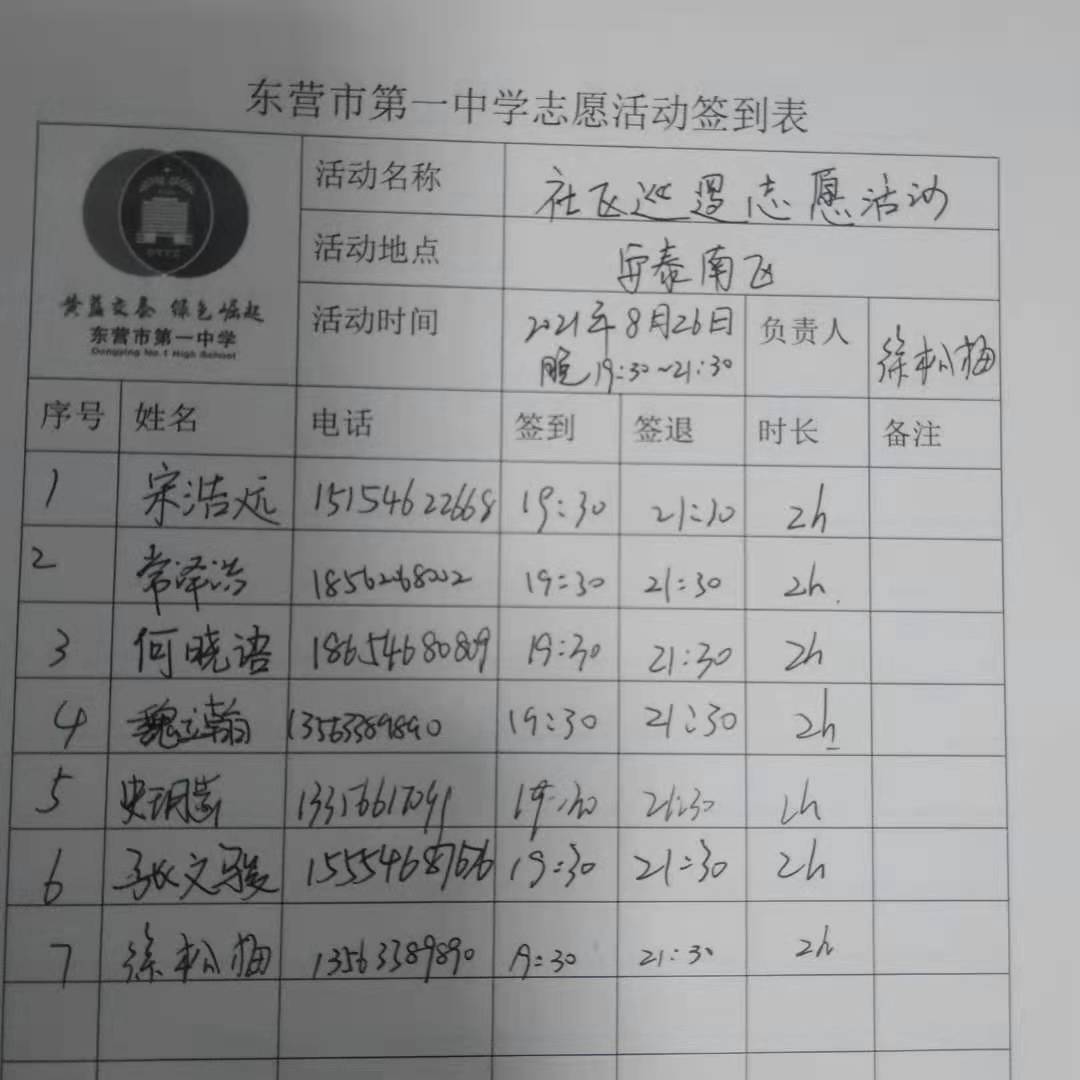 东营市第一中学志愿活动签到表
活动名称 社区巡逻志愿活动
活动地点 安泰南区
黄蓝交泰 绿色崛起
东营市第一中学
Dongying No.1 High School
活动时间 2021年8月26日 负责人 徐松梅
晚19:30~21:30
序号 姓名 电话 签到 签退 时长 备注
1 宋浩远 15154622668 19:30 21:30 2h
2 常泽浩 19:30 21:30 2h
3 何晓语 18654680809 19:30 21:30 2h
4 魏立瀚 13563389890 19:30 21:30 2h
5 19:30 21:30 2h
6 张文骏 19:30 21:30 2h
7 徐松梅 13563389890 19:30 21:30 2h